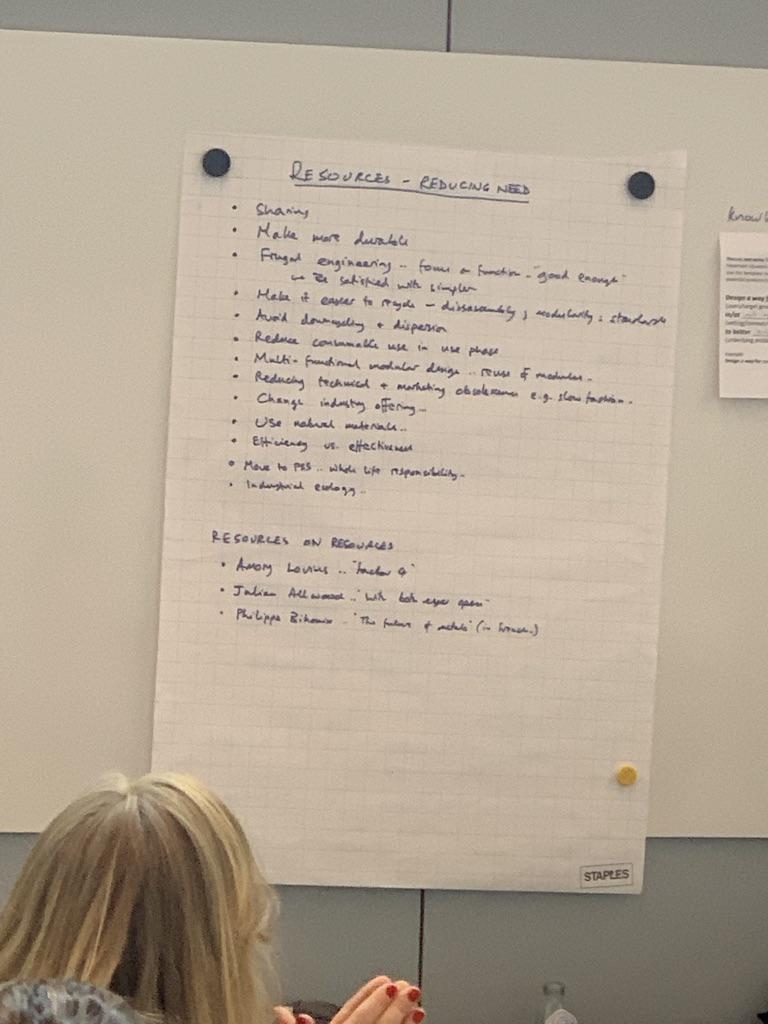 RESOURCES - REDUCING NEED
• Sharing
• Make more durable
• Frugal engineering .. focus on function .. "good enough"
↳ Be satisfied with simpler
• Make it easier to recycle - dissassembly ; modularity ; standards
• Avoid downcycling + dispersion
• Reduce consumable use in use phase
• Multi-functional modular design .. reuse of modules..
• Reducing technical + marketing obsolescence e.g. slow fashion.
• Change industry offering...
• Use natural materials..
• Efficiency vs. effectiveness
• Move to PSS .. whole life responsibility..
• Industrial ecology..
RESOURCES ON RESOURCES
• Amory Lovins .. "factor 4"
• Julian Allwood .. "with both eyes open"
• Philippe Bihouix .. "The future of metals" (in french.)
STAPLES
Design a way f